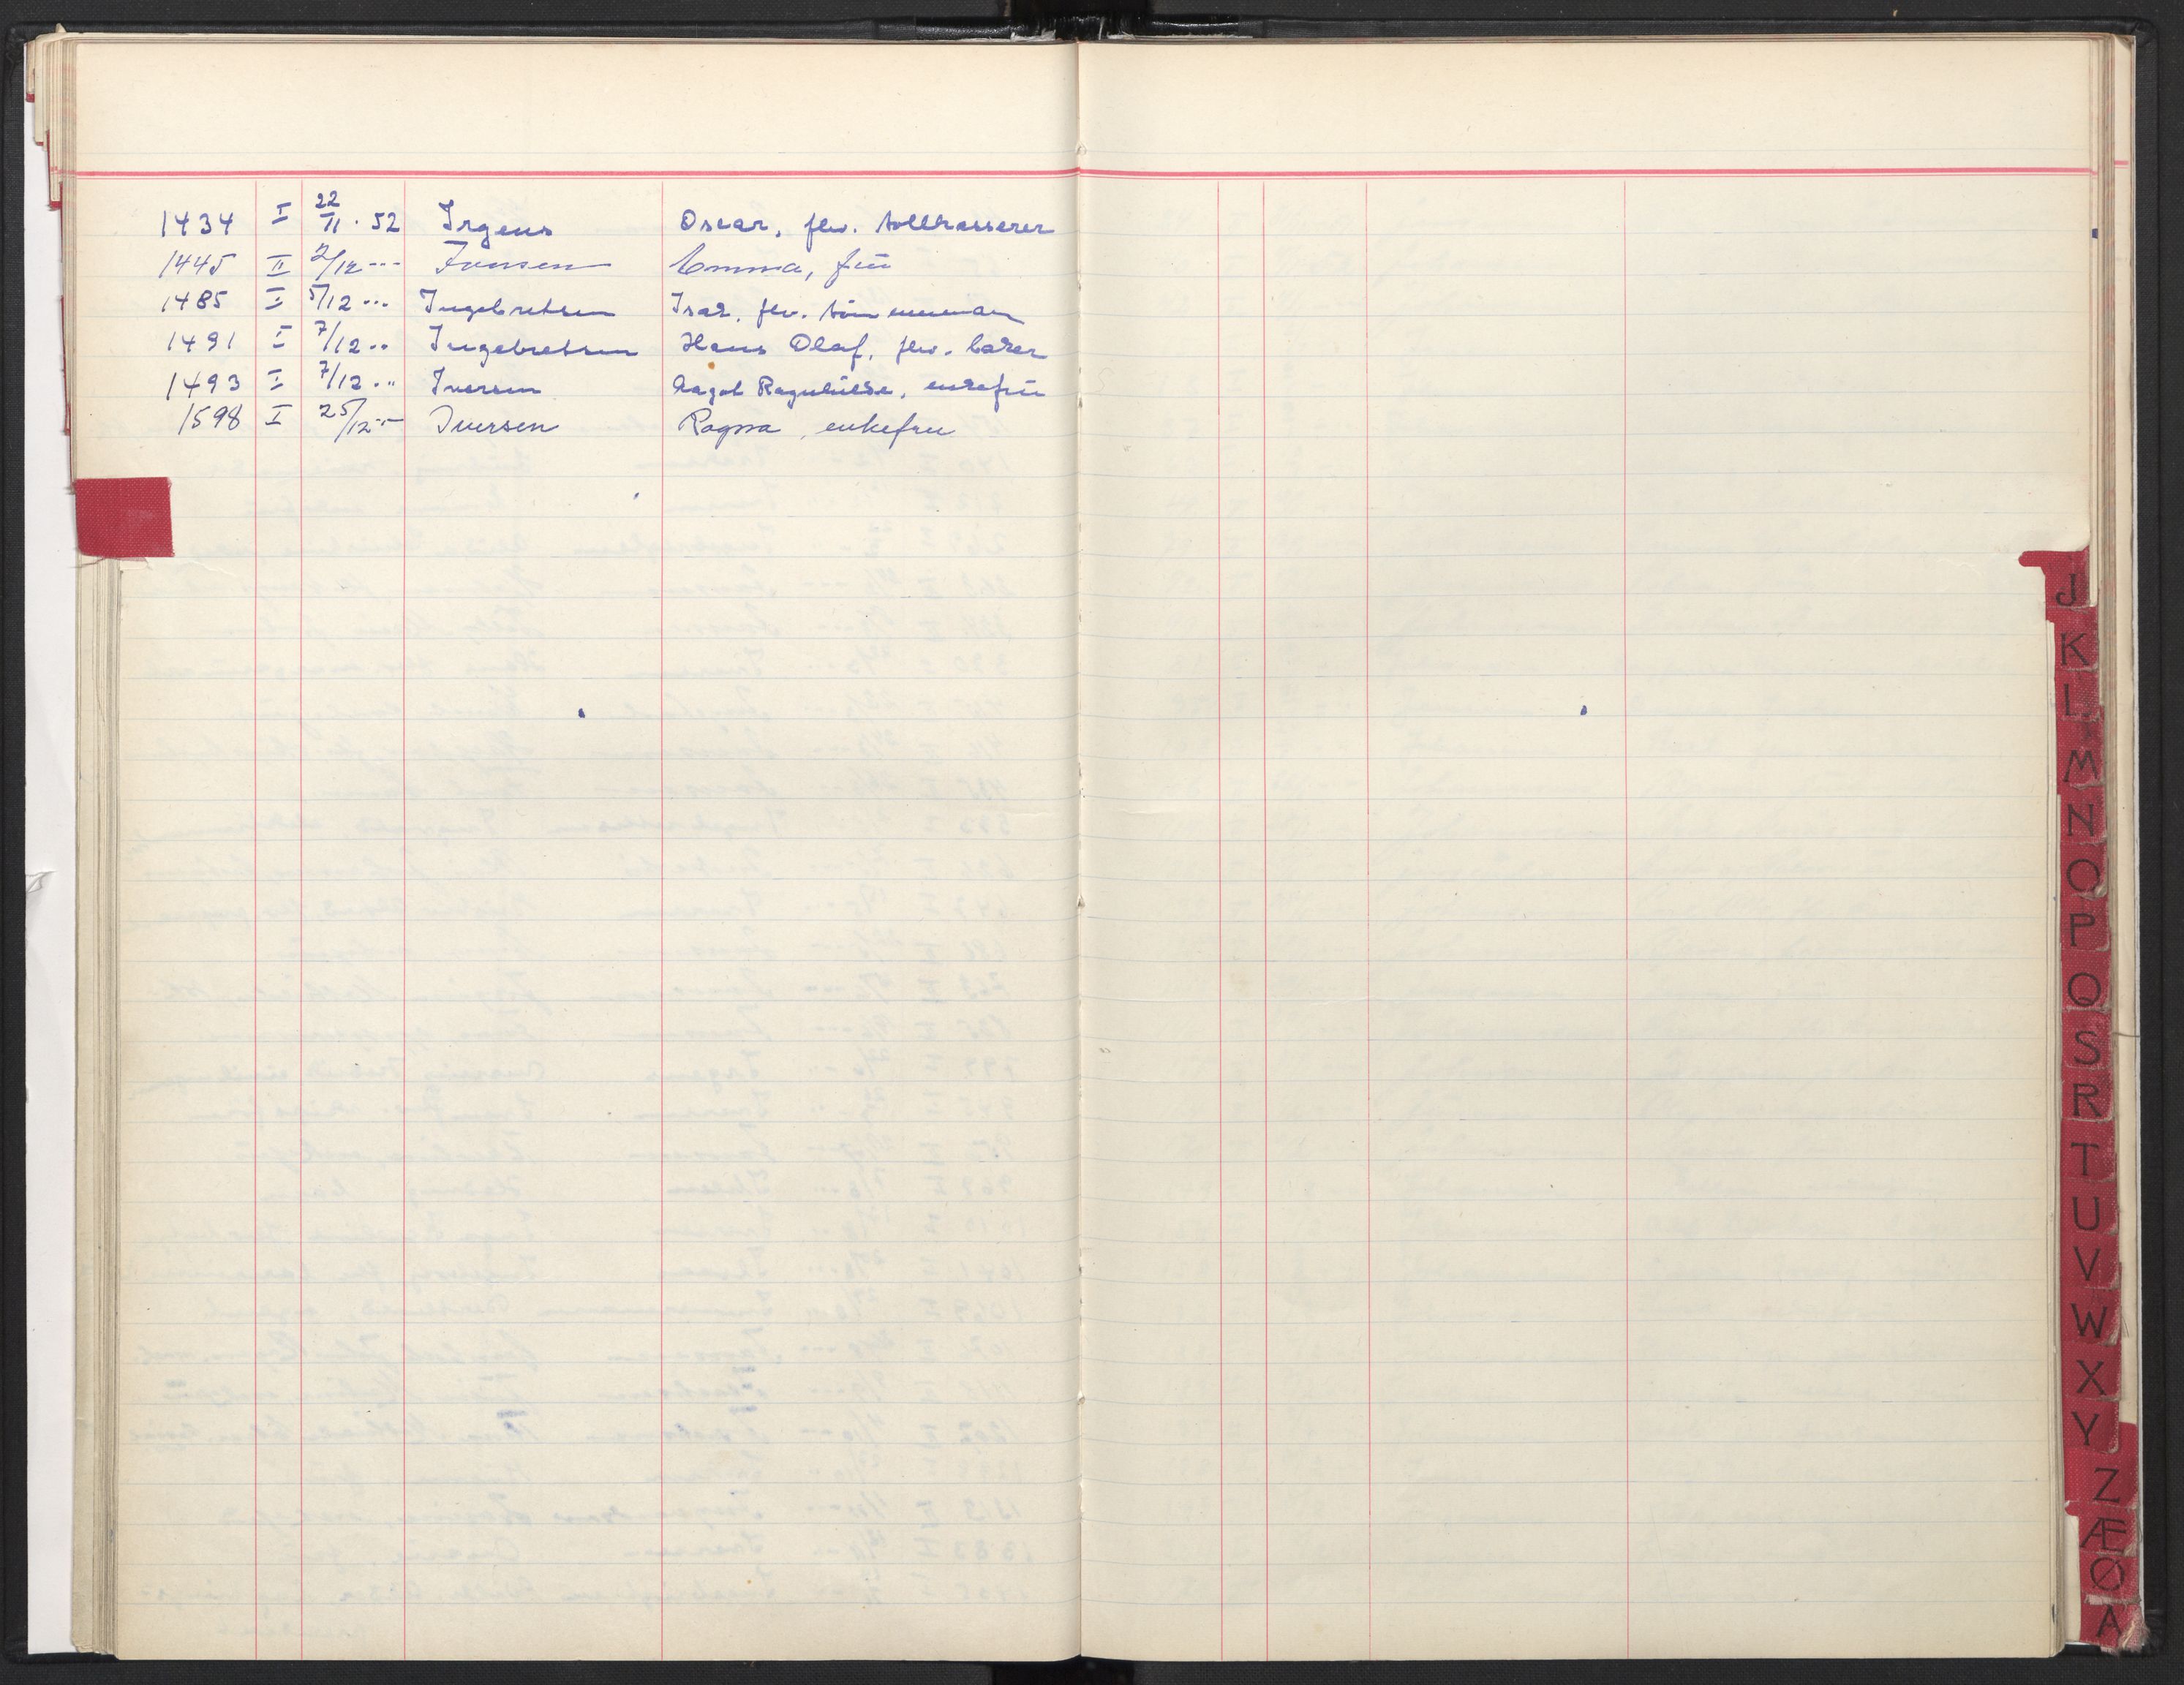 1434 I 22/11.52 Irgens Oscar, fhv. tollkasserer
1445 II 2/12 --- Iversen Emma, frü
1485 I 5/12 ... Ingebretsen Isak, fhv. tömmerman
1491 I 7/12 .. Ingebretsen Hans Olaf, fhv. baker
1493 I 7/12 ... Iversen Aagot Ragnhilde, enkefrü
1598 I 25/12 --- Iversen Ragna, enkefru
J
K
L
M
N
O
P
Q
S
R
T
U
V
W
X
Y
Z
Æ
Ø
A